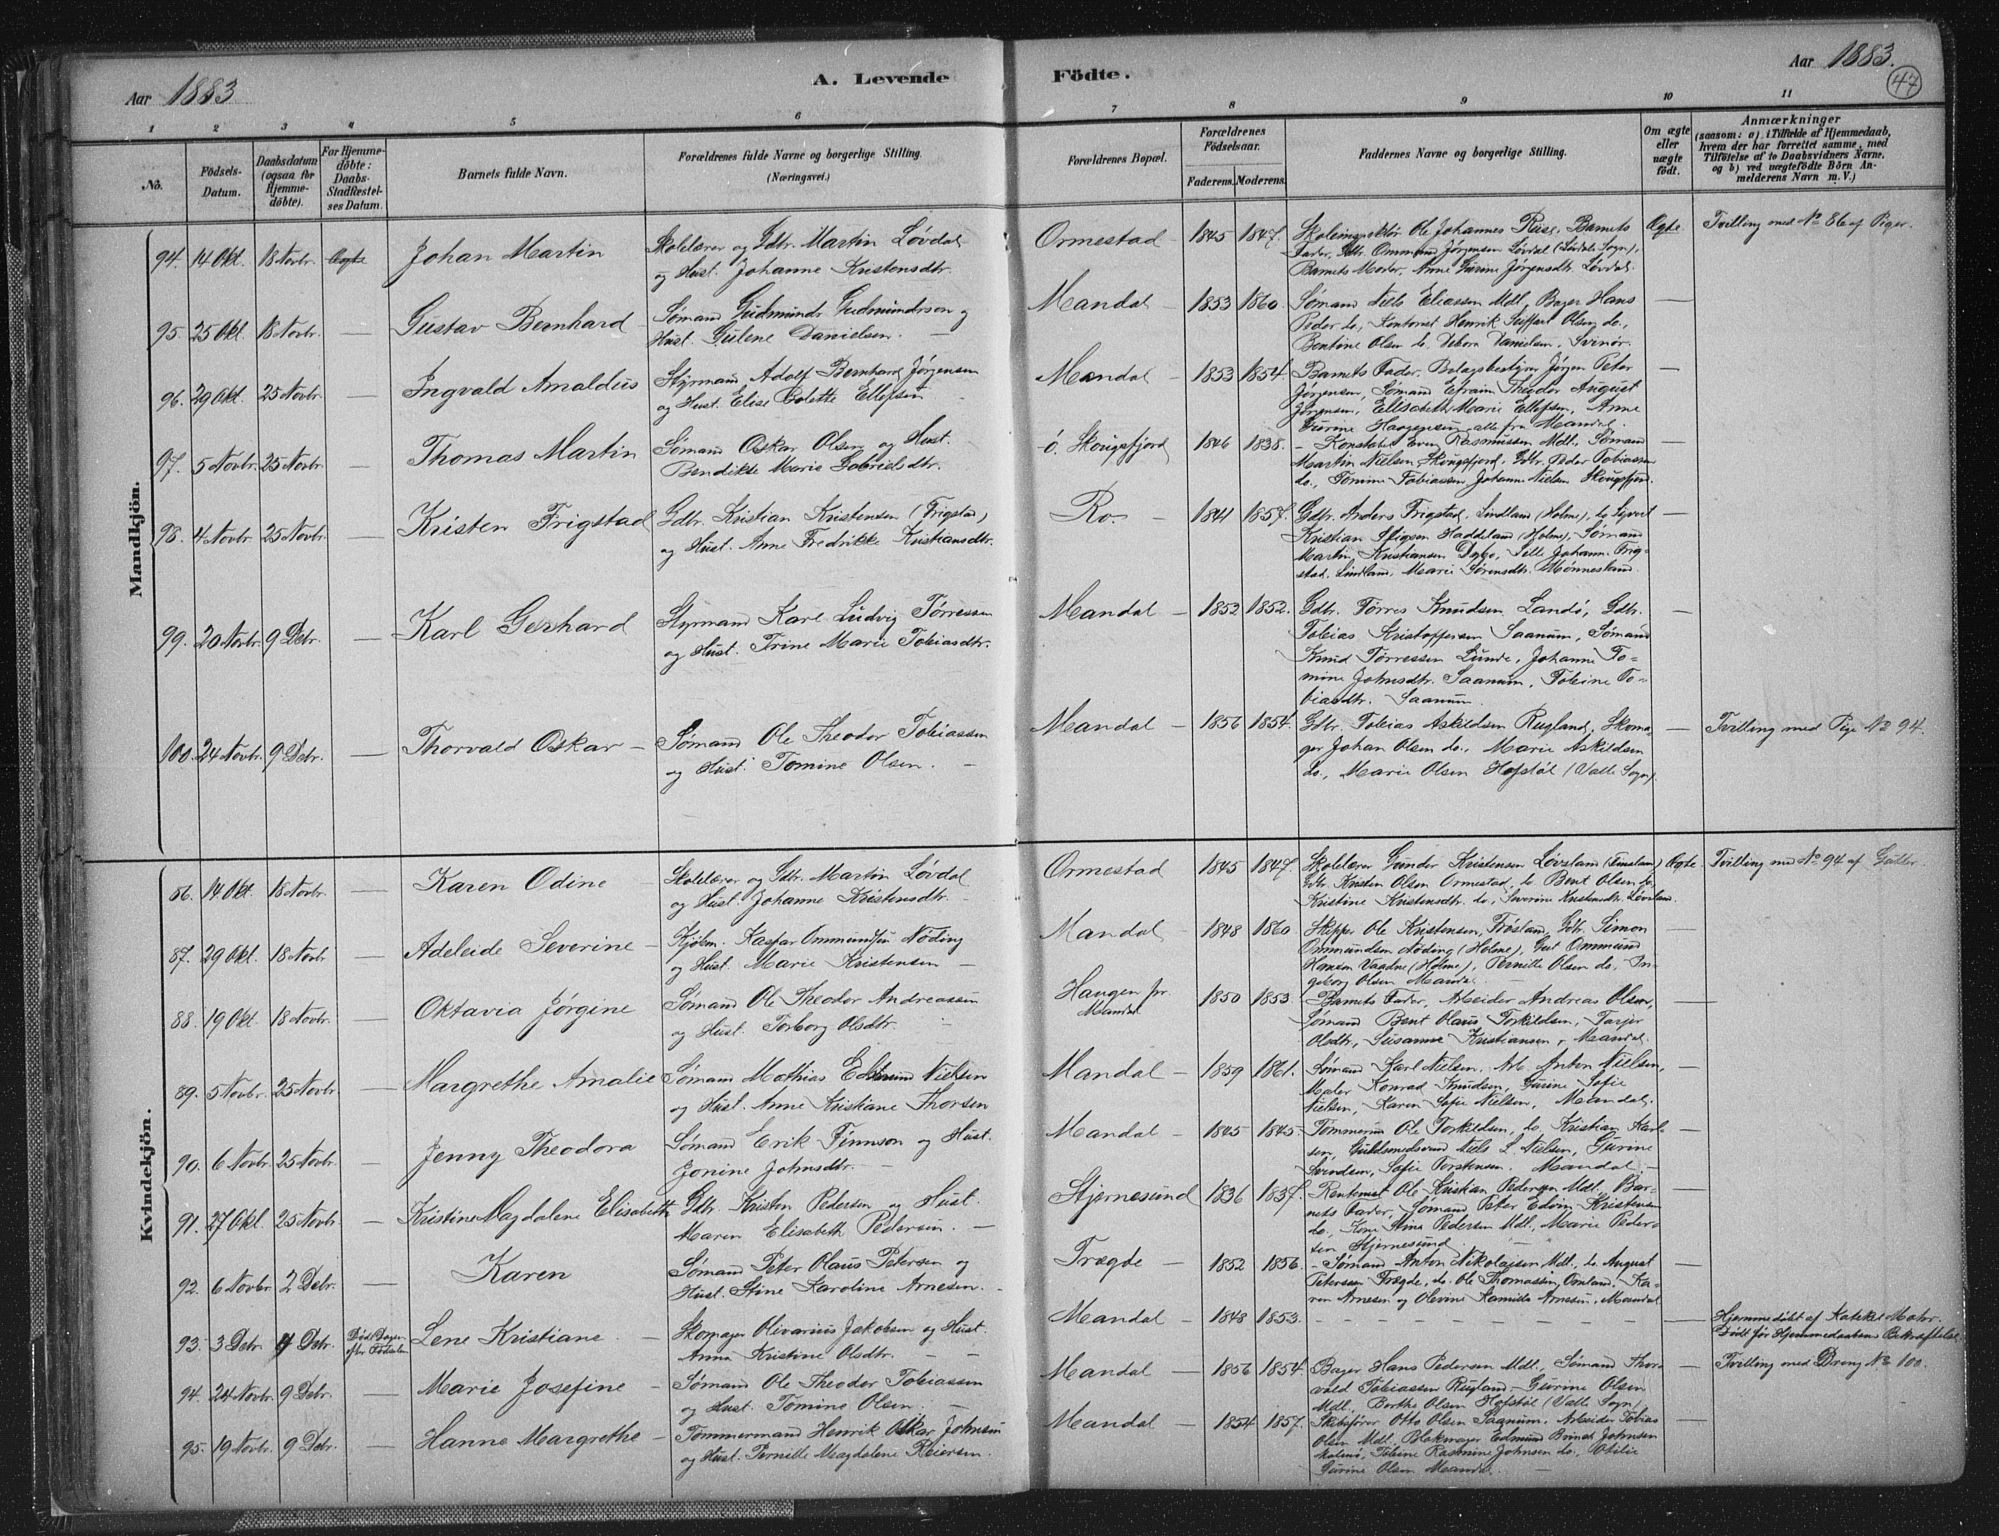 Aar 1883
A. Levende
Födte.
Aar 1883.
47
1 2 3 4 5 6 7 8 9 10 11
No.
Födsels-
Datum.
Daabsdatum
(ogsaa for
Hjemme-
döbte).
For Hjemme-
döbte:
Daabs-
Stadfæstel-
ses Datum.
Barnets fulde Navn.
Forældrenes fulde Navne og borgerlige Stilling.
(Næringsvei.)
Forældrenes Bopæl.
Forældrenes
Födselsaar.
Faderens. Moderens.
Faddernes Navne og borgerlige Stilling.
Om ægte
eller
uægte
födt.
Anmærkninger
(saasom: a). i Tilfælde af Hjemmedaab,
hvem der har forrettet samme, med
Tilföielse af to Daabsvidners Navne,
og b) ved uægtefödte Börn An-
melderens Navn m. V.)
Mandkjön.
94. 14 Okt. 18 Novbr. Ægte Johan Martin
Skolelærer og Gdbr. Martin Løvdal
og Hust. Johanne Kristensdtr.
Ormestad 1845 1847.
Skoleinspektør Ole Johannes Barnets
Fader, Gdbr. Ommund Jørgensen Løvdal
Barnets Moder, Anne Gurine Jørgensdtr. Løvdal.
Ægte Tvilling med No 86 af Piger.
95. 25 Okt. 18 Novbr. — Gustav Bernhard
Sømand Gudmundr. Gudmundsson og
Hust. Gulene Danielsen. —
Mandal — 1853 1860.
Sømand Niels Eliassen Mdl., Bager Hans
Peder do., Kontorist Henrik Olsen do.,
Bentine Olsen do. Debora Danielsen, Svinør.
—
96. 29 Okt. 25 Novbr. — Ingvald Arnaldus
Styrmand Adolf Bernhard Jørgensen
og Hust. Elise Colette Ellefsen
Mandal — 1853 1854.
Barnets Fader, Bolagsbestyrer Jørgen Peter
Jørgensen, Sømand Efraim Theodor August
Jørgensen, Ellisabeth Marie Ellefsen, Anne
Gurine alle fra Mandal.
—
97. 5 Novbr. 25 Novbr. — Thomas Martin
Sømand Oskar Olsen og Hust.
Bendikte Marie Gabrielsdtr.
ö. Skougsfjord 1846 1838.
— Konstabel Even Rasmussen Mdl., Sømand
Martin Nielsen Skougsfjord, Gdbr. Peder Tobiassen
do., Tomine Tobiassen, Johanne Nielsen Skougsfjord.
—
98. 4 Novbr. 25 Novbr. — Kristen Frigstad
Gdbr. Kristian Kristensen (Frigstad)
og Hust. Anne Fredrikke Kristiansdtr.
Ro. — 1841 1857.
Gdbr. Anders Frigstad, Lindland (Holme), do Syvert
Kristian Haddeland (Holme), Sømand
Martin Kristiansen Dybo, Sille Johanne Frig-
stad Lindland, Marie Sørensdtr. Mønnesland.
—
99. 20 Novbr. 9 Debr. — Karl Gerhard
Styrmand Karl Ludvig Tørressen
og Hust. Trine Marie Tobiasdtr.
Mandal — 1852 1852.
Gdbr. Tørres Knudsen Landø, Gdbr.
Tobias Kristoffersen Saanum, Sømand
Knud Tørressen Lunde, Johanne To-
mine Johnsdtr. Saanum, Tobine To-
biasdtr. Saanum.
—
100. 24 Novbr. 9 Debr. — Thorvald Oskar —
Sømand Ole Theodor Tobiassen
og Hust. Tomine Olsen. —
Mandal — 1856 1854.
Gdbr. Tobias Askildsen Rugland, Skoma-
ger Johan Olsen do., Marie Askildsen
do., Marie Olsen Hofstøl (Valle Sogn).
— Tvilling med Pige No 94.
Kvindekjön.
86. 14 Okt. 18 Novbr. — Karen Odine —
Skolelærer og Gdbr. Martin Løvdal
og Hust. Johanne Kristensdtr. —
Ormestad 1845 1847.
Skolelærer Gunder Kristensen Løvsland (Finsland)
Gdbr. Kristen Olsen Ormestad, do. Bent Olsen do.
Kristine Kristensdtr. do., Severine Kristensdtr. Løvsland.
Ægte. Tvilling med No 94 af Gutter
87. 29 Okt. 18 Novbr. — Adeleide Severine —
Kjøbm. Kaspar Ommundsen Nøding
og Hust. Marie Kristensen —
Mandal — 1848 1860
Skipper Ole Kristensen, Frøsland, Gdbr. Simon
Ommundsen Nøding (Holme), Ommund
Hansen Vaadne (Holme), Pernille Olsen do., In-
geborg Olsen Mandal —
—
88. 19 Okt. 18 Novbr. — Oktavia Jørgine
Sømand Ole Theodor Andreassen
og Hust. Torborg Olsdtr. —
Haugen pr.
Mandal
1850 1853
Barnets Fader, Arbeider Andreas Olsen,
Sømand Bent Olaus Torkildsen, Tarjer
Olsdtr, Susanne Kristiansen, Mandal.
—
89. 5 Novbr. 25 Novbr. — Margrethe Amalie
Sømand Mathias Edmund Nielsen
og Hust. Anne Kristiane Thorsen
Mandal — 1859 1861.
Sømand Karl Nielsen, Arb. Anton Nielsen,
Maler Konrad Knudsen, Gurine Sofie
Nielsen, Karen Sofie Nielsen, Mandal.
—
90. 6 Novbr. 25 Novbr. — Jenny Theodora
Sømand Erik Finnson og Hust.
Jonine Johnsdtr. —
Mandal — 1845 1845.
Tømmerm Ole Torkildsen, do. Kristian Karl-
sen, Guldsmedsvend Niels L. Nielsen, Gurine
Svendsen, Sofie Torstensen. Mandal. —
—
91. 27 Okt. 25 Novbr. — Kristine Magdalene Elisabeth
Gdbr. Kristen Pedersen og Hust.
Maren Elisabeth Pedersen. —
Stjernesund 1836 1837.
Rentenist Ole Kristian Pedersen Mdl. Bar-
nets Fader, Sømand Peter Edvin Kristensen
do., Kone Stina Pedersen Mdl., Marie Peder-
sen Stjernesund. —
—
92. 6 Novbr. 2 Debr. — Karen
Sømand Peter Olaus Petersen og
Hust. Stine Karoline Arnesen. —
Trægde — 1852 1856.
— Sømand Anton Nikolaisen Mdl. do. August
Peterssen Trægde, do. Ole Thomassen Omland, Ka-
ren Arnesen og Olevine Kamilla Arnesen, Mandal
—
93. 3 Debr. 4 Debr. Död Dagen
efter Fødselen
Lene Kristiane —
Skomager Olivarius Jakobsen og Hust.
Anna Kristine Olsdtr. — —
Mandal — 1848 1853.
— — — — — — — —
— Hjemmedøbt af Kateket Mohr.
Født før Hjemmedaabens Bekræftelse.
94. 24 Novbr. 9 Debr. — Marie Josefine —
Sømand Ole Theodor Tobiassen
og Hust. Tomine Olsen. —
Mandal — 1856 1854.
Bager Hans Pedersen Mdl., Sømand Thor-
vald Tobiassen Rugland — Gurine Olsen
Mdl., Berthe Olsen Hofstøl (Valle Sogn)
— Tvilling med Dreng No 100.
95. 19 Novbr. 9 Debr. — Hanne Margrethe —
Tømmermand Henrik Oskar Johnsen
og Hust. Pernille Magdalene Reiersen.
Mandal — 1854 1857.
Skibsfører Otto Olsen Saanum, Arbeider Tobias
Olsen Mdl. Blokmager Edmund Johnsen
Malmö, Tobine Rasmine Johnsen do. Otilie
Gurine Olsen Mandal —
—